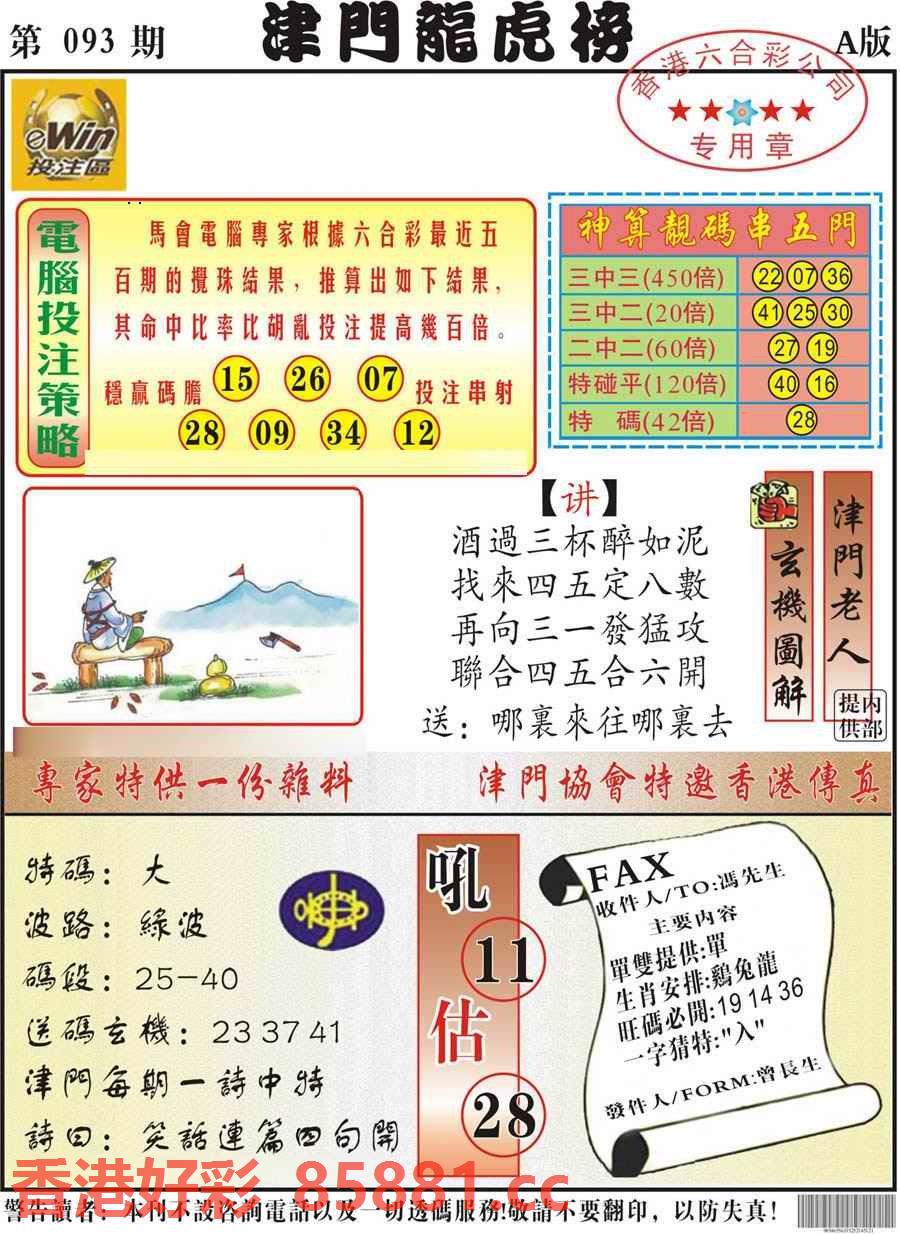 第 093 期
津門龍虎榜
A版
香港六合彩公司
专用章
eWin
投注區
電腦投注策略
馬會電腦專家根據六合彩最近五
百期的攪珠結果，推算出如下結果，
其命中比率比胡亂投注提高幾百倍。
穩贏碼膽 15 26 07 投注串射
28 09 34 12
神算靚碼串五門
三中三(450倍) 22 07 36
三中二(20倍) 41 25 30
二中二(60倍) 27 19
特碰平(120倍) 40 16
特 碼(42倍) 28
【讲】
酒過三杯醉如泥
找來四五定八數
再向三一發猛攻
聯合四五合六開
送：哪裏來往哪裏去
玄機圖解
津門老人
内部提供
專家特供一份雜料
津門協會特邀香港傳真
特碼：大
波路：綠波
碼段：25-40
送碼玄機：23 37 41
津門每期一詩中特
詩曰：笑話連篇四句開
吼
11
估
28
FAX
收件人/TO:馮先生
主要内容
單雙提供:單
生肖安排:鷄兔龍
旺碼必開:19 14 36
一字猜特:"入"
發件人/FORM:曾長生
香港好彩 85881.cc
警告讀者：本刊不設咨詢電話以及一切透碼服務!敬請不要翻印，以防失真!